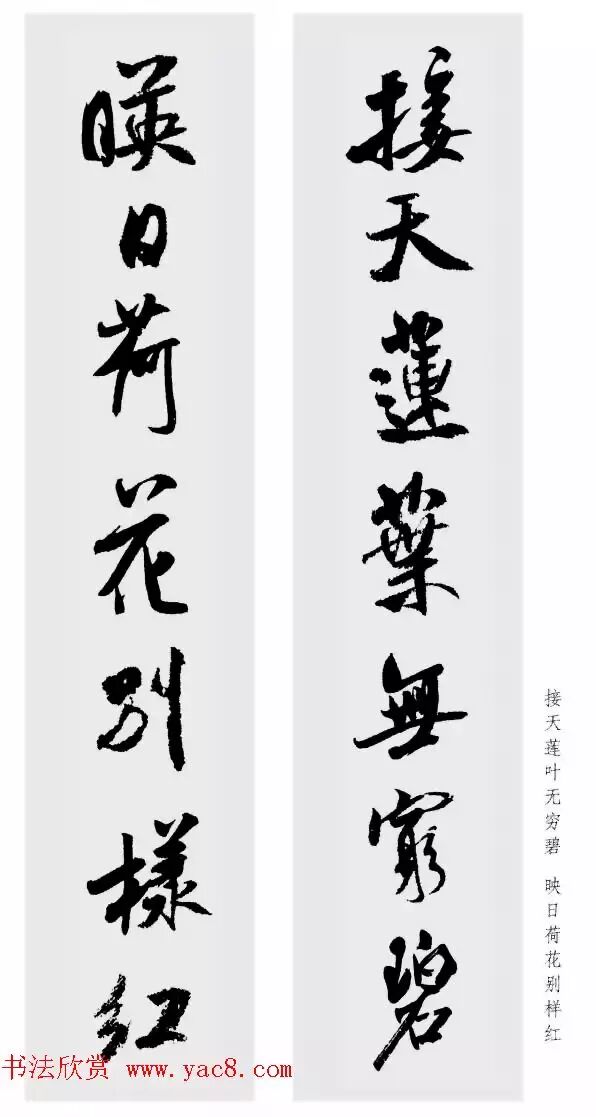 接天蓮葉無窮碧
暎日荷花别樣红
接天莲叶无穷碧 映日荷花别样红
书法欣赏 www.yac8.com